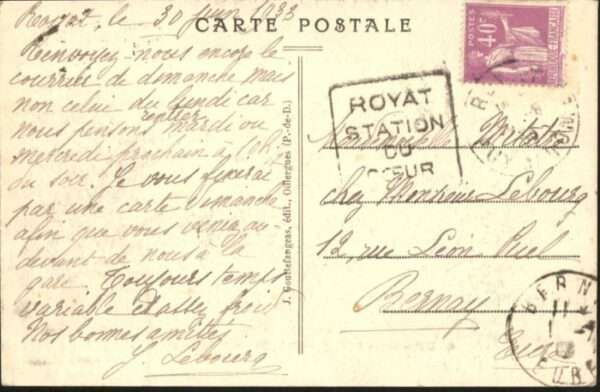 Royat, le 30 Juin 1933
CARTE POSTALE
Renvoyez-nous encore le
courrier de dimanche mais
non celui du lundi car
nous pensons rentrer mardi ou
mercredi prochain à
du soir. Je vous fixerai
par une carte dimanche
afin que vous veniez au-
devant de nous à la
gare. Toujours temps
variable et assez froid
Nos bonnes amitiés
Lebourg
J. Gouttefangeas, édit., Olliergues (P.-de-D.)
40c
POSTES
ROYAT
STATION
DU
CŒUR
Mademoiselle
chez Monsieur Lebourg
12, rue Léon
Bernay
Eure
BERN
11
EURE